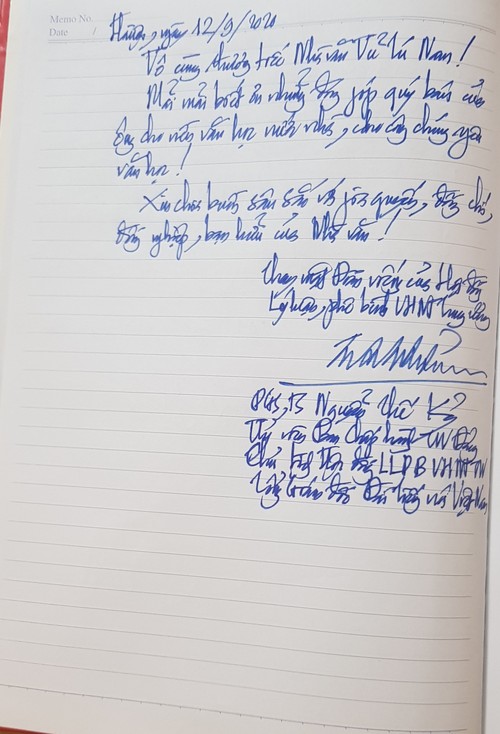 Memo No.
Date /
Hà Nội, ngày 12/9/2020
Vô cùng thương tiếc Nhà văn Vũ Tú Nam!
Mãi mãi biết ơn những đóng góp quý báu của
ông cho nền văn học nước nhà, cho công chúng yêu
văn học!
Xin chia buồn sâu sắc với gia quyến, đồng chí,
đồng nghiệp, bạn hữu của Nhà văn!
Thay mặt Đoàn viếng của Hội đồng
Lý luận, phê bình VHNT Trung ương
PGS, TS Nguyễn Thế Kỷ
Uỷ viên Ban Chấp hành TW Đảng
Chủ tịch Hội đồng LLPB VHNT TW
Tổng Giám đốc Đài Tiếng nói Việt Nam